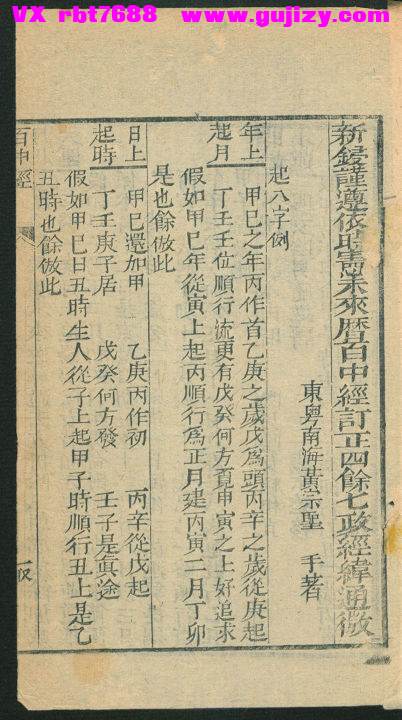 VX rbt7688 www.gujizy.com
新鋟謹遵依取憲未來曆百中經訂正四餘七政經緯通微
東粵南海黃宗聖 手著
起八字例
年上起月 甲巳之年丙作首乙庚之歲戊爲頭丙辛之歲從庚起
丁壬壬位順行流更有戊癸何方覓甲寅之上好追求
假如甲巳年從寅上起丙順行爲正月建丙寅二月丁卯
是也餘倣此
日上起時 甲巳還如甲 乙庚丙作初 丙辛從戊起
丁壬庚子居 戊癸何方發 壬子是眞途
假如甲巳日丑時生人從子上起甲子時順行丑上是乙
丑時也餘倣此
百中經